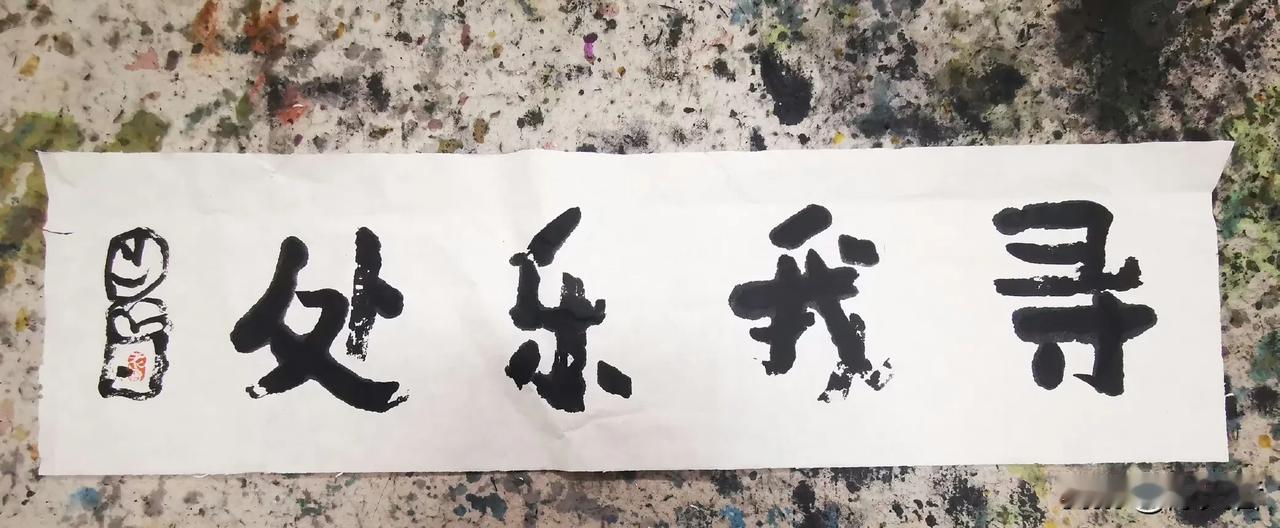 寻我乐处